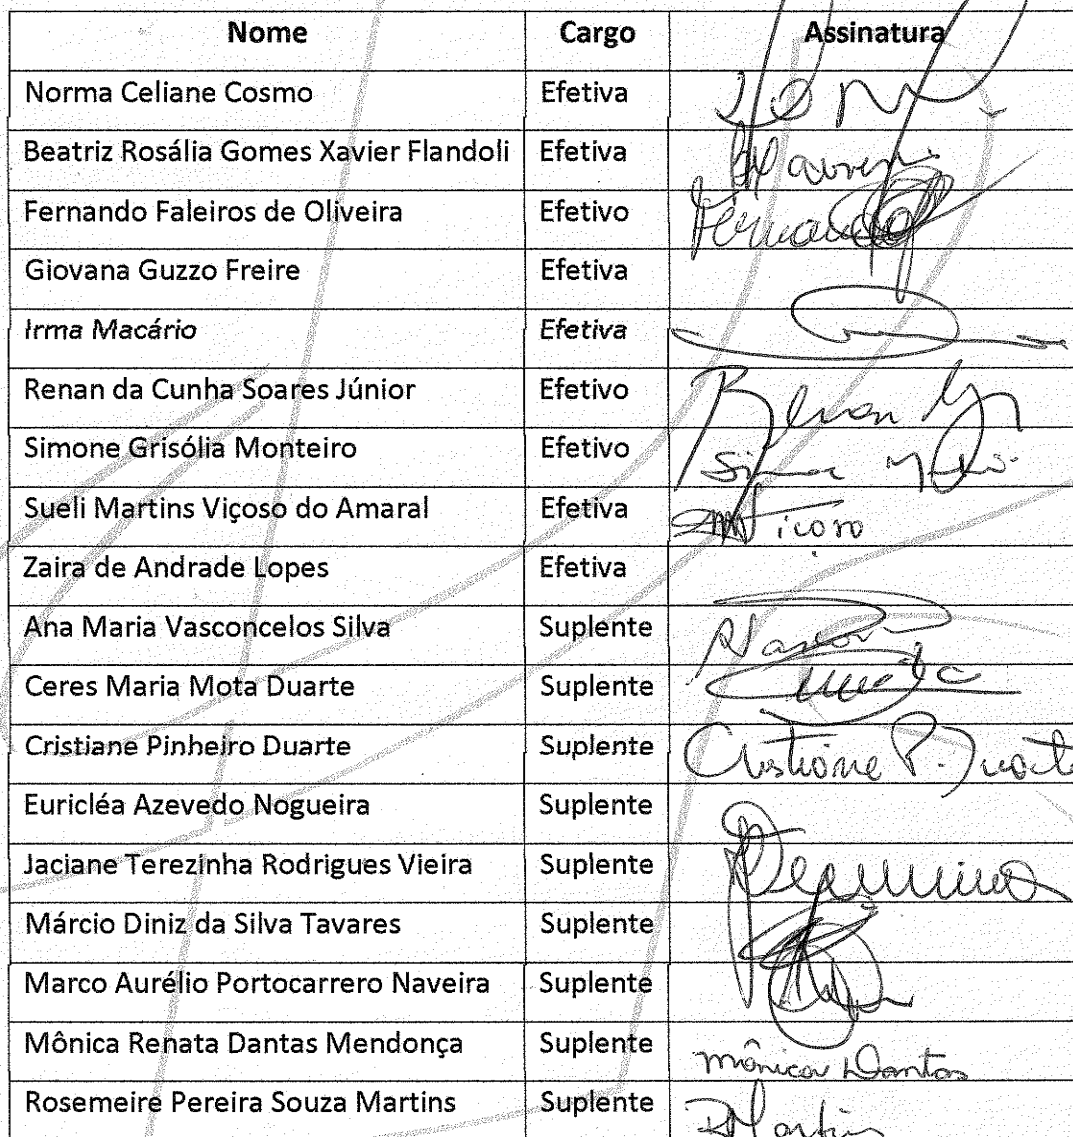 Nome Cargo Assinatura
Norma Celiane Cosmo Efetiva
Beatriz Rosália Gomes Xavier Flandoli Efetiva
Fernando Faleiros de Oliveira Efetivo Fernando
Giovana Guzzo Freire Efetiva
Irma Macário Efetiva
Renan da Cunha Soares Júnior Efetivo Renan
Simone Grisólia Monteiro Efetivo
Sueli Martins Viçoso do Amaral Efetiva
Zaira de Andrade Lopes Efetiva
Ana Maria Vasconcelos Silva Suplente
Ceres Maria Mota Duarte Suplente
Cristiane Pinheiro Duarte Suplente Cristiane P. Duarte
Euricléa Azevedo Nogueira Suplente
Jaciane Terezinha Rodrigues Vieira Suplente
Márcio Diniz da Silva Tavares Suplente
Marco Aurélio Portocarrero Naveira Suplente
Mônica Renata Dantas Mendonça Suplente Mônica Dantas
Rosemeire Pereira Souza Martins Suplente RMartins